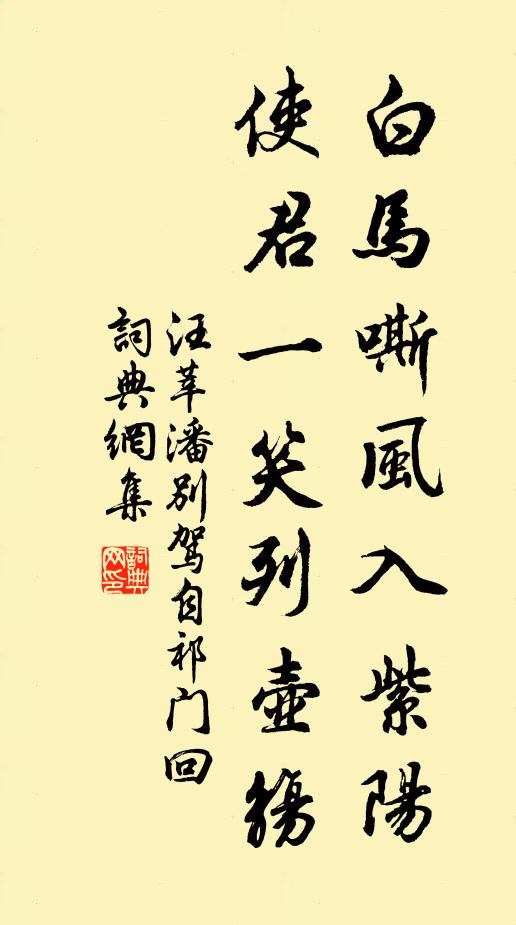 白馬嘶風入紫陽
使君一笑列壺觴
汪莘潘別駕自祁门回
詞典網集
詞典网印